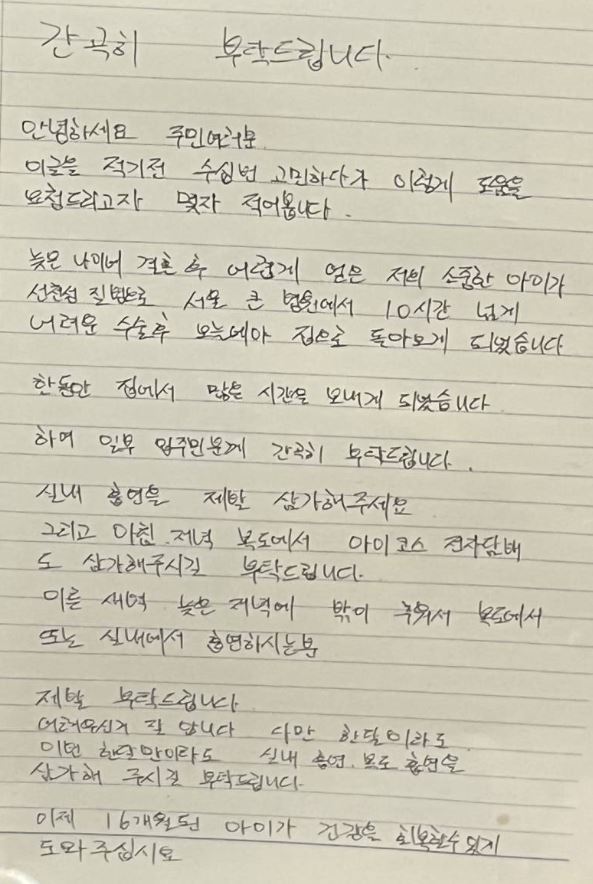 간곡히 부탁드립니다.
안녕하세요 주민여러분
이글을 적기전 수십번 고민하다가 이렇게 도움을
요청드리고자 몇자 적어봅니다.
늦은 나이에 결혼 후 어렵게 얻은 저희 소중한 아이가
선천성 질병으로 서울 큰 병원에서 10시간 넘게
어려운 수술후 오늘에야 집으로 돌아오게 되었습니다
한동안 집에서 많은 시간을 보내게 되었습니다
하여 일부 입주민분께 간곡히 부탁드립니다.
실내 흡연을 제발 삼가해주세요
그리고 아침.저녁 복도에서 아이코스 전자담배
도 삼가해주시길 부탁드립니다.
이른 새벽 늦은 저녁에 밖이 추워서 복도에서
또는 실내에서 흡연하시는분
제발 부탁드립니다
어려우신거 잘 압니다 다만 한달이라도
이번 한달만이라도 실내 흡연.복도 흡연을
삼가해 주시길 부탁드립니다.
이제 16개월된 아이가 건강을 회복할수 있게
도와주십시요